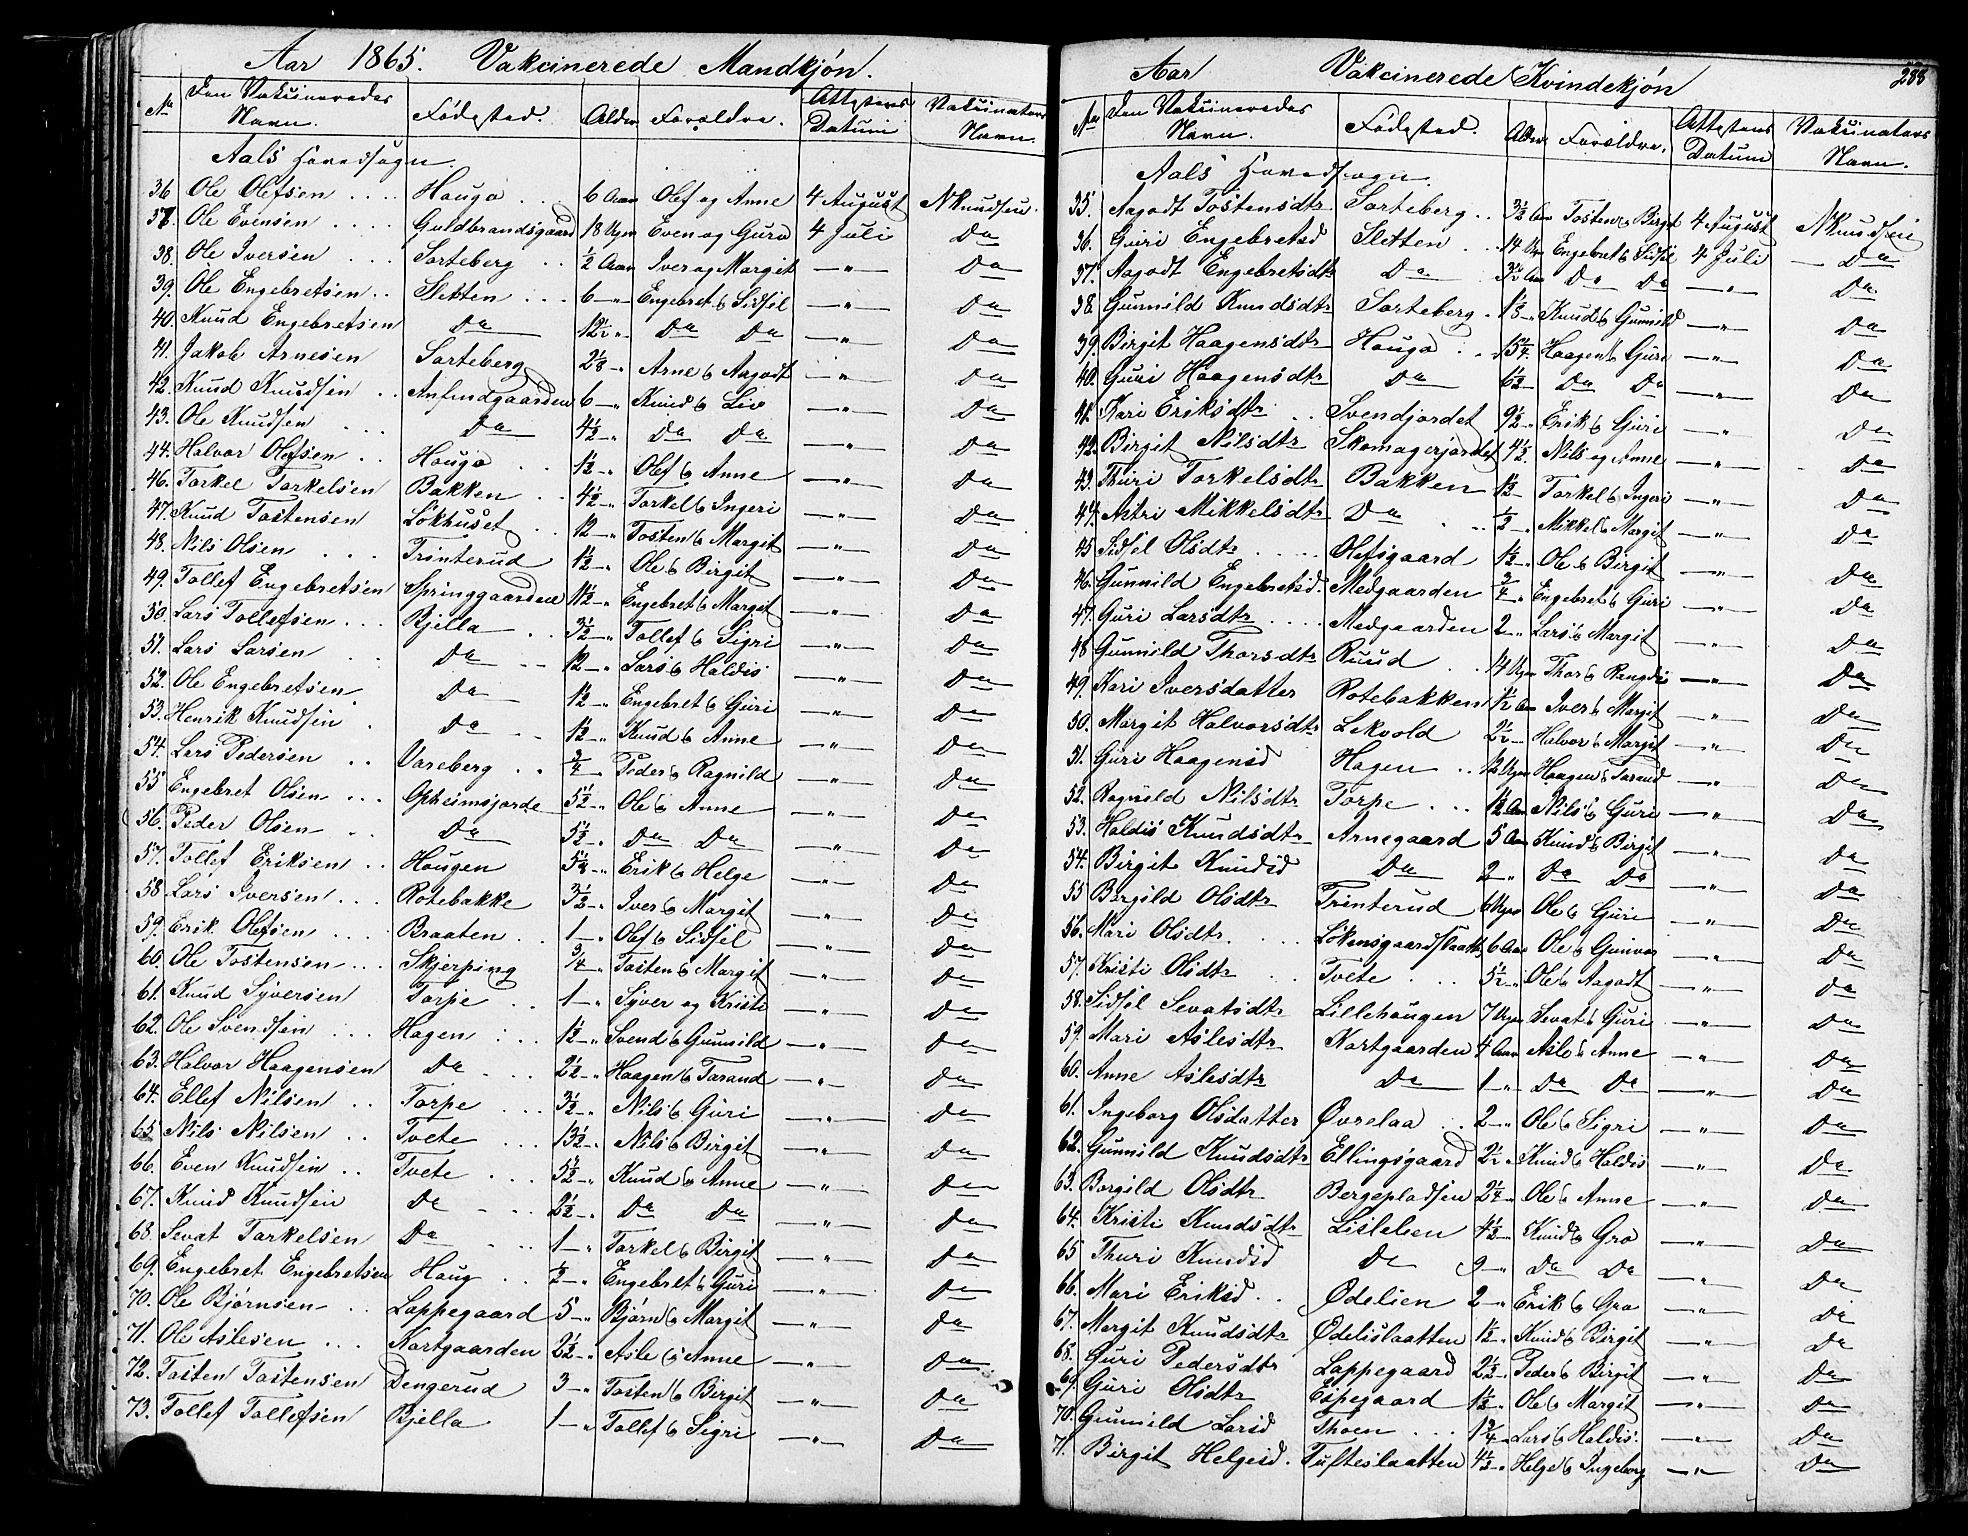 Aar 1865. Vakcinerede Mandkjön.
No Den Vakcineredes Navn. Födested. Alder Forældre. Attestens Datum Vakcinators Navn.
Aals Hovedsogn.
36 Ole Olefsen .... Houge .. 6 Aar Olef og Anne 4 August N Knudsen.
37. Ole Evensen .... Guldbrandsgaard 18 Ugr Even og Guro 4 Juli Do
38. Ole Iversen ... Sorteberg .. 1/2 Aar Iver og Margit —"— Do
39. Ole Engebretsen .. Sletten ... 6 —" Engebret & Sidsel —"— Do
40. Knud Engebretsen Do 12½ " Do Do —"— Do
41. Jakob Arnesen Sorteberg 2⅓ —" Arne & Aagodt —"— Do
42. Knud Knudsen .. Anfindgaarden 6 —" Knud & Liv —"— Do
43. Ole Knudsen ... Do 4½ —" Do Do —"— Do
44. Halvor Olefsen .. Houge .. 1½ —" Olef & Anne —"— Do
46. Torkel Torkelsen Bakken .. 4½ —" Torkel & Ingeri —"— Do
47. Knud Tostensen Lökhuset . 12 —" Tosten & Margit —"— Do
48. Nils Olsen ... Trinterud 1½ —" Ole & Birgit —"— Do
49. Tollef Engebretsen Springgaarden 11½ —" Engebret & Margit —"— Do
50. Lars Tollefsen ... Bjella .. 3½ —" Tollef & Sigri —"— Do
51. Lars Larsen .. Do .. 12 —" Lars & Haldis —"— Do
52. Ole Engebretsen . Do 1½ —" Engebret & Guri —"— Do
53. Henrik Knudsen . Do .. 1½ —" Knud & Anne —"— Do
54. Lars Pedersen .. Vareberg .. 3/4 —" Peder & Ragnild —"— Do
55 Engebret Olsen ... Opheimsjorde 5½ —" Ole & Anne —"— Do
56. Peder Olsen .. Do 5½ —" Do Do —"— Do
57. Tollef Eriksen .. Hougen 5½ —" Erik & Helge —"— Do
58. Lars Iversen ... Rotebakke 3½ —" Iver & Margit —"— Do
59. Erik Olefsen .... Braaten .. 1 —" Olef & Sidsel —"— Do
60. Ole Tostensen ... Skjerping 3/4 —" Tosten & Margit —"— Do
61. Knud Syversen Torpe .. 1 —" Syver og Kristi —"— Do
62. Ole Svendsen ... Hagen ... 1½ —" Svend & Gunnild —"— Do
63. Halvor Haagensen Do ... 2½ —" Haagen & Tarand —"— Do
64. Ellef Nilsen .. Torpe ... 3½ —" Nils & Guri —"— Do
65 Nils Nilsen .. Tvete ... 13½ —" Nils & Birgit —"— Do
66. Even Knudsen .. Tvete ... 5½ —" Knud & Anne —"— Do
67. Knud Knudsen Do ... 2½ —" Do Do —"— Do
68. Sevat Torkelsen Do ... 1 —" Torkel & Birgit —"— Do
69. Engebret Engebretsen Houg .. ½ —" Engebret & Guri —"— Do
70. Ole Björnsen .. Loppegaard 5 —" Björn & Margit —"— Do
71. Ole Aslesen ... Kortgaarden 2½ —" Asle & Anne —"— Do
72. Tosten Tostensen Dengerud 3 —" Tosten & Birgit —"— Do
73. Tollef Tollefsen Bjella 1 —" Tollef & Sigri —"— Do
Aar Vakcinerede Kvindekjön 288
No Den Vakcineredes Navn. Födested. Alder Forældre. Attestens Datum Vakcinators Navn.
Aals Hovedsogn.
35. Aagodt Tostensdtr Sorteberg .. 3½ Aar Tosten & Birgit 4 August N Knudsen
36. Guri Engebretsd Sletten .. 14 Ugr Engebret & Sidsel 4 Juli Do
37. Aagodt Engebretsdtr Do 3½ Aar Do Do —"— Do
38. Gunnild Knudsdtr Sorteberg . 1⅓ —" Knud & Gunnild —"— Do
39. Birgit Haagensdtr Houge .. 15¼ Haagen & Guri —"— Do
40. Guri Haagensdtr Do 6½ Do Do —"— Do
41. Kari Eriksdtr .. Svendjordet 9½ —" Erik & Guri —"— Do
42. Birgit Nilsdtr Skomagerjordet 4½ Nils og Anne —"— Do
43. Thuri Torkelsdtr Bakken 1½ Torkel & Ingeri —"— Do
44. Astri Mikkelsdtr Do .. ½ —" Mikkel & Margit —"— Do
45 Sidsel Olsdtr .... Olefsgaard 1½ —" Ole & Birgit —"— Do
46. Gunnild Engebretsd. Medgaarden 3/4 " Engebret & Guri —"— Do
47. Guri Larsdtr .... Medgaarden 2 —" Lars & Margit —"— Do
48 Gunnild Thorsdtr Ruud .. 14 Ugr Thor & Rangdi —"— Do
49. Kari Iversdatter Rotebakken 1½ Aar Iver & Margit —"— Do
50. Margit Halvorsdtr Lekvold 2½ —" Halvor & Margit —"— Do
51. Guri Haagensd Hagen .. 12 Ugr Haagen & Tarand —"— Do
52. Ragnild Nilsdtr Torpe ... 1½ Aar Nils & Guri —"— Do
53. Haldis Knudsdtr Arnegaard 5 Aar Knud & Birgit —"— Do
54. Birgit Knudsd Do 2 —" Do Do —"— Do
55 Bergild Olsdtr Trinterud 6 Ugr Ole & Guri —"— Do
56. Mari Olsdtr .... Lökensgaardslaatte 6 Aar Ole & Gunvor —"— Do
57. Kristi Olsdtr .. Tvete ... 5½ " Ole & Aagodt —"— Do
58. Sidsel Sevatsdtr Lillehougen 7 Ugr Sevat & Guri —"— Do
59. Mari Aslesdtr Kortgaarden 4 Aar Asle & Anne —"— Do
60. Anne Aslesdtr Do 1 —" Do Do —"— Do
61. Ingeborg Olsdatter Övrelaa .. 2 —" Ole & Sigri —"— Do
62. Gunnild Knudsdtr Ellingsgaard 2½ " Knud & Haldis —"— Do
63. Borgild Olsdtr Bergepladsen 2¼ " Ole & Anne —"— Do
64. Kristi Knudsdtr Lislelien 4½ —" Knud & Gro —"— Do
65 Thuri Knudsd Do 9 —" Do Do —"— Do
66. Mari Eriksd .. Ödelien 2 —" Erik & Gro —"— Do
67. Margit Knudsdtr Ödelislaatten 1½ —" Knud & Birgit —"— Do
68. Guri Pedersdtr Loppegaard 2½ —" Peder & Birgit —"— Do
69. Guri Olsdtr Espegaard 1½ —" Ole & Margit —"— Do
70. Gunnild Larsd Thoen ... 1¾ —" Lars & Haldis. —"— Do
71. Birgit Helgesd. Tufteslaatten 4½ —" Helge & Ingeborg —"— Do